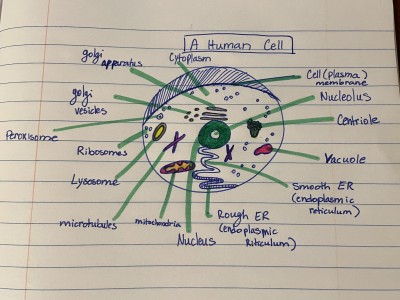 A Human Cell
golgi
apparatus
Cytoplasm
Cell (plasma)
membrane
golgi
vesicles
Nucleolus
Peroxisome
Centriole
Ribosomes
Vacuole
Lysosome
Smooth ER
(endoplasmic
reticulum)
microtubules
mitochondria
Rough ER
(endoplasmic
Riticulum)
Nucleus